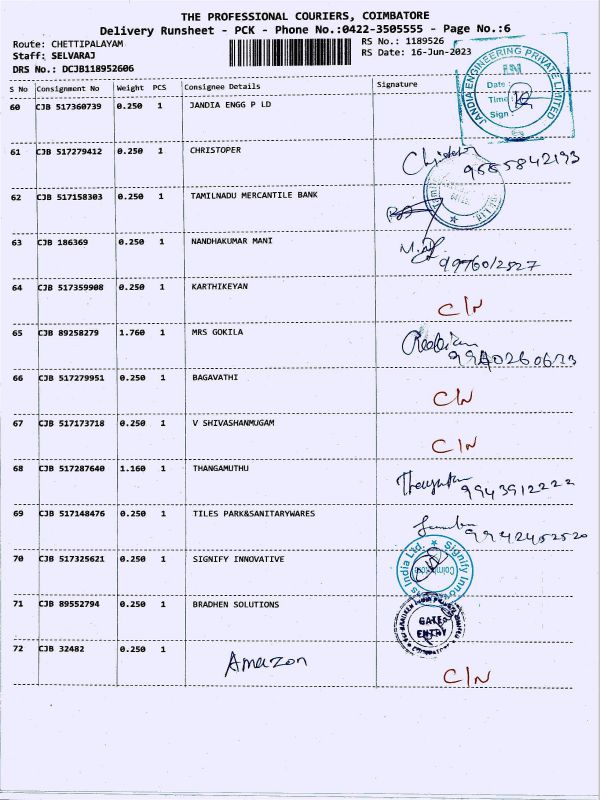 THE PROFESSIONAL COURIERS, COIMBATORE
Delivery Runsheet - PCK - Phone No.:0422-3505555 - Page No.:6
Route: CHETTIPALAYAM
RS No.: 1189526
Staff: SELVARAJ
RS Date: 16-Jun-2023
DRS No.: DCJB118952606
S No Consignment No Weight PCS Consignee Details Signature
JANDIA ENGINEERING PRIVATE LIMITED
Date
Time
Sign
60 CJB 517360739 0.250 1 JANDIA ENGG P LD
61 CJB 517279412 0.250 1 CHRISTOPER
62 CJB 517158303 0.250 1 TAMILNADU MERCANTILE BANK
63 CJB 186369 0.250 1 NANDHAKUMAR MANI
64 CJB 517359908 0.250 1 KARTHIKEYAN C/N
65 CJB 89258279 1.760 1 MRS GOKILA
66 CJB 517279951 0.250 1 BAGAVATHI C/N
67 CJB 517173718 0.250 1 V SHIVASHANMUGAM C/N
68 CJB 517287640 1.160 1 THANGAMUTHU 9943912222
69 CJB 517148476 0.250 1 TILES PARK&SANITARYWARES 9942452520
70 CJB 517325621 0.250 1 SIGNIFY INNOVATIVE
Signify Inno s India Ltd. Coimbatore
71 CJB 89552794 0.250 1 BRADHEN SOLUTIONS
GATE
ENTRY
72 CJB 32482 0.250 1 Amazon C/N